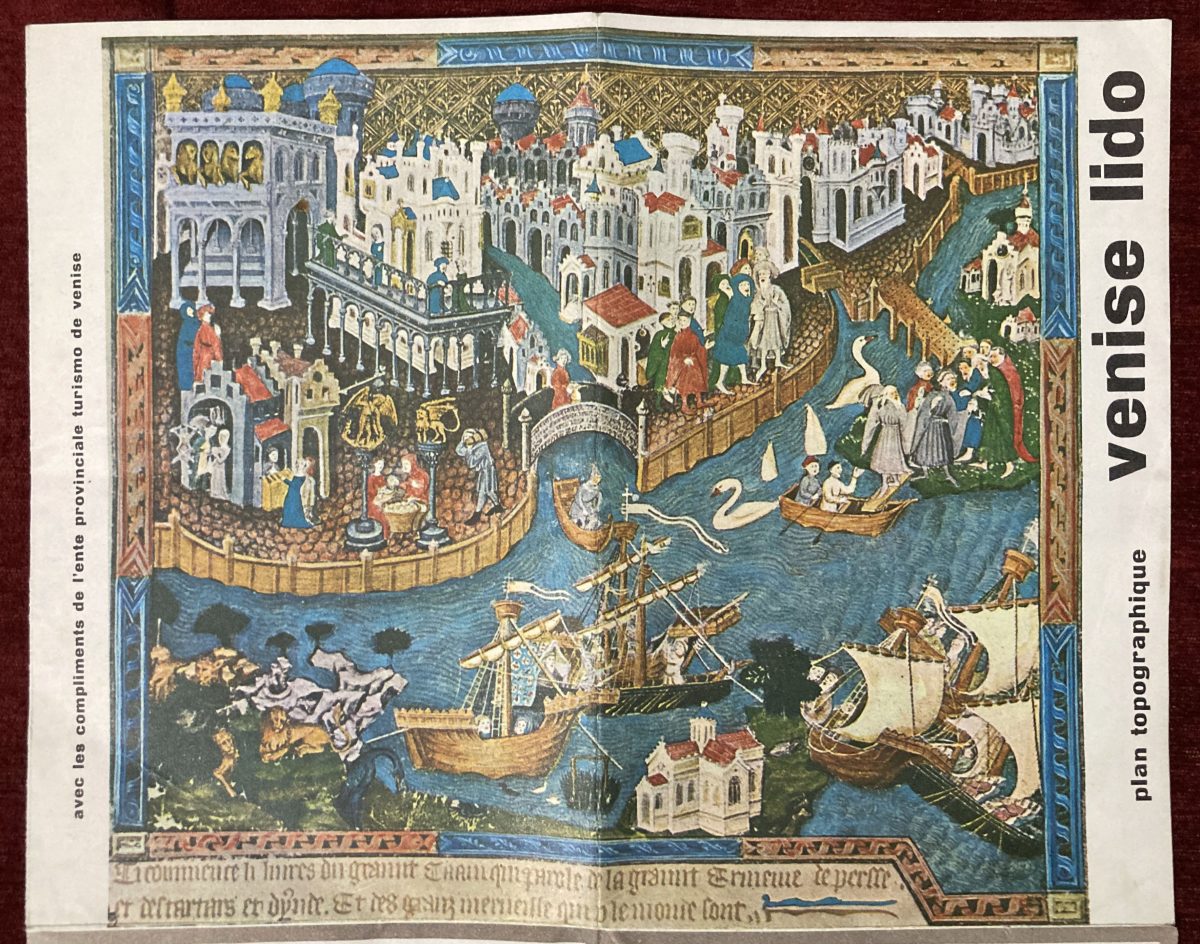 avec les compliments de l'ente provinciale turismo de venise
venise lido
plan topographique
Ci coumence li liures du graunt Caam qui parole de la graunt Ermenie de persse.
et des tartars et dynde. Et des granz merueille qui le monde sont